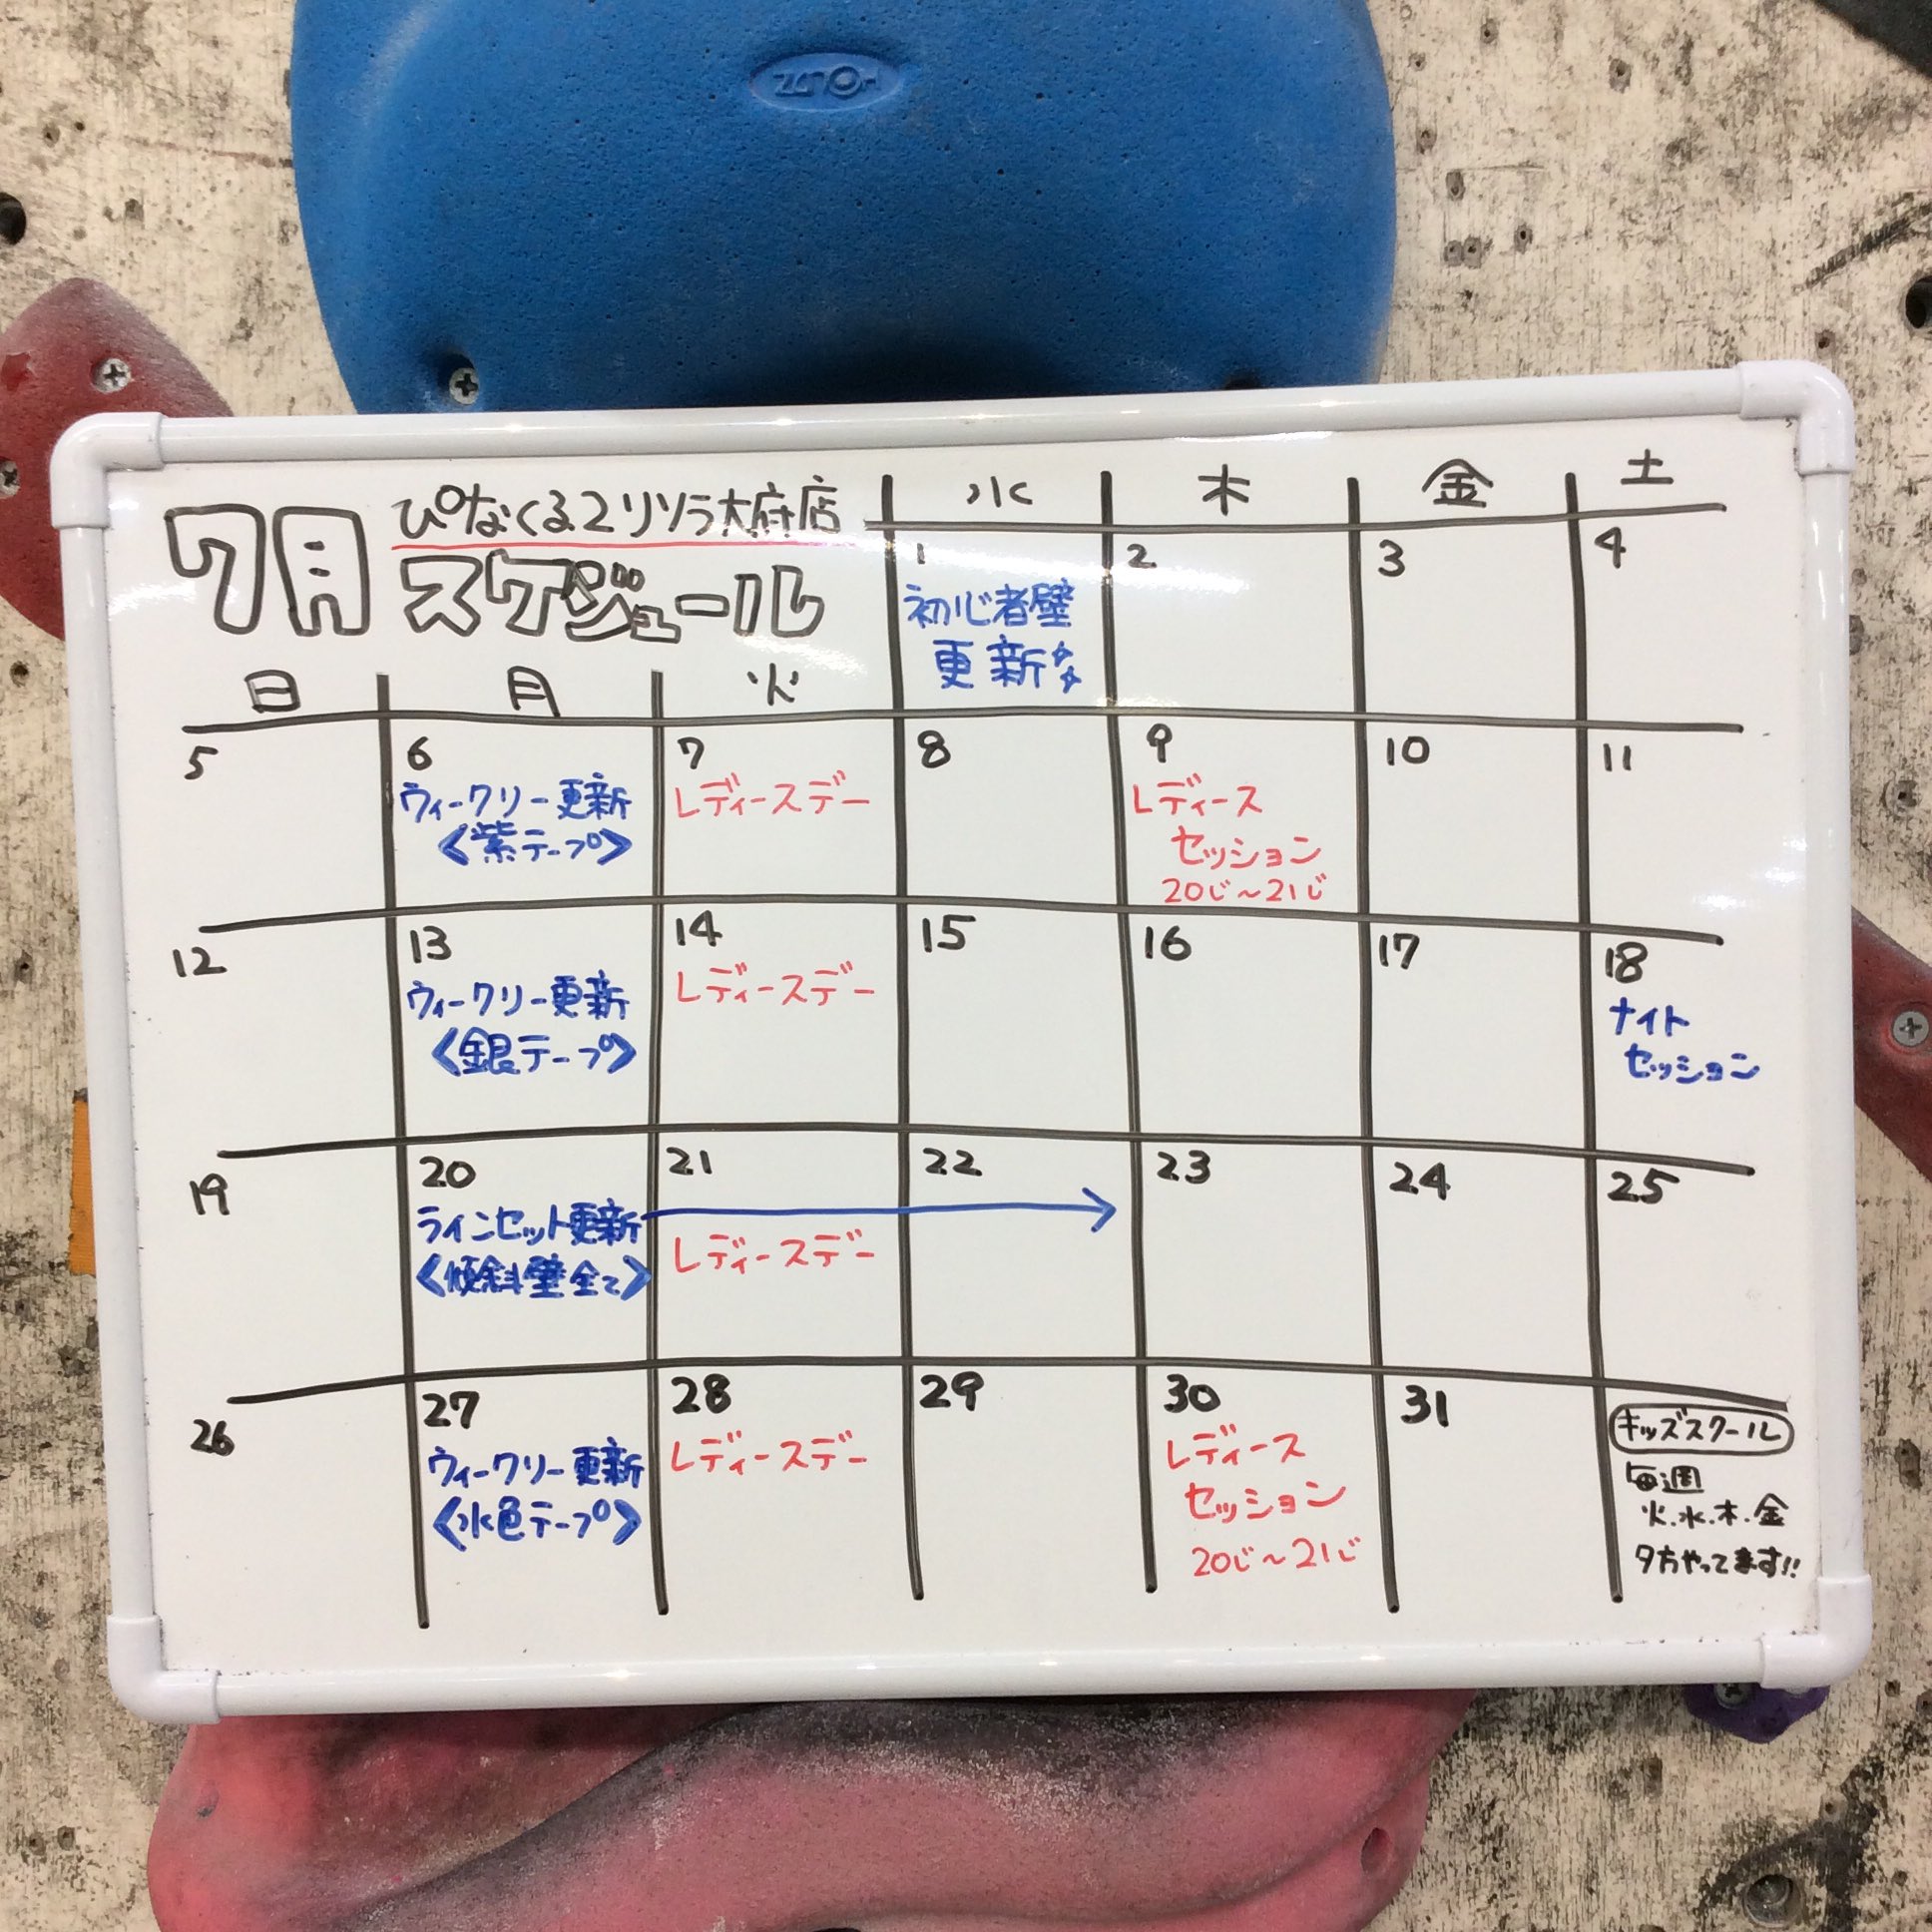 HOLDZ
7月
ぴなくる2リソラ大府店
スケジュール
水 木 金 土
1 2 3 4
初心者壁
更新
日 月 火
5 6 7 8 9 10 11
ウィークリー更新
<紫テープ>
レディースデー
レディース
セッション
20じ~21じ
12 13 14 15 16 17 18
ウィークリー更新
<銀テープ>
レディースデー
ナイト
セッション
19 20 21 22 23 24 25
ラインセット更新
<傾斜壁全て>
レディースデー
26 27 28 29 30 31
ウィークリー更新
<水色テープ>
レディースデー
レディース
セッション
20じ~21じ
キッズスクール
毎週
火.水.木.金
夕方やってます!!